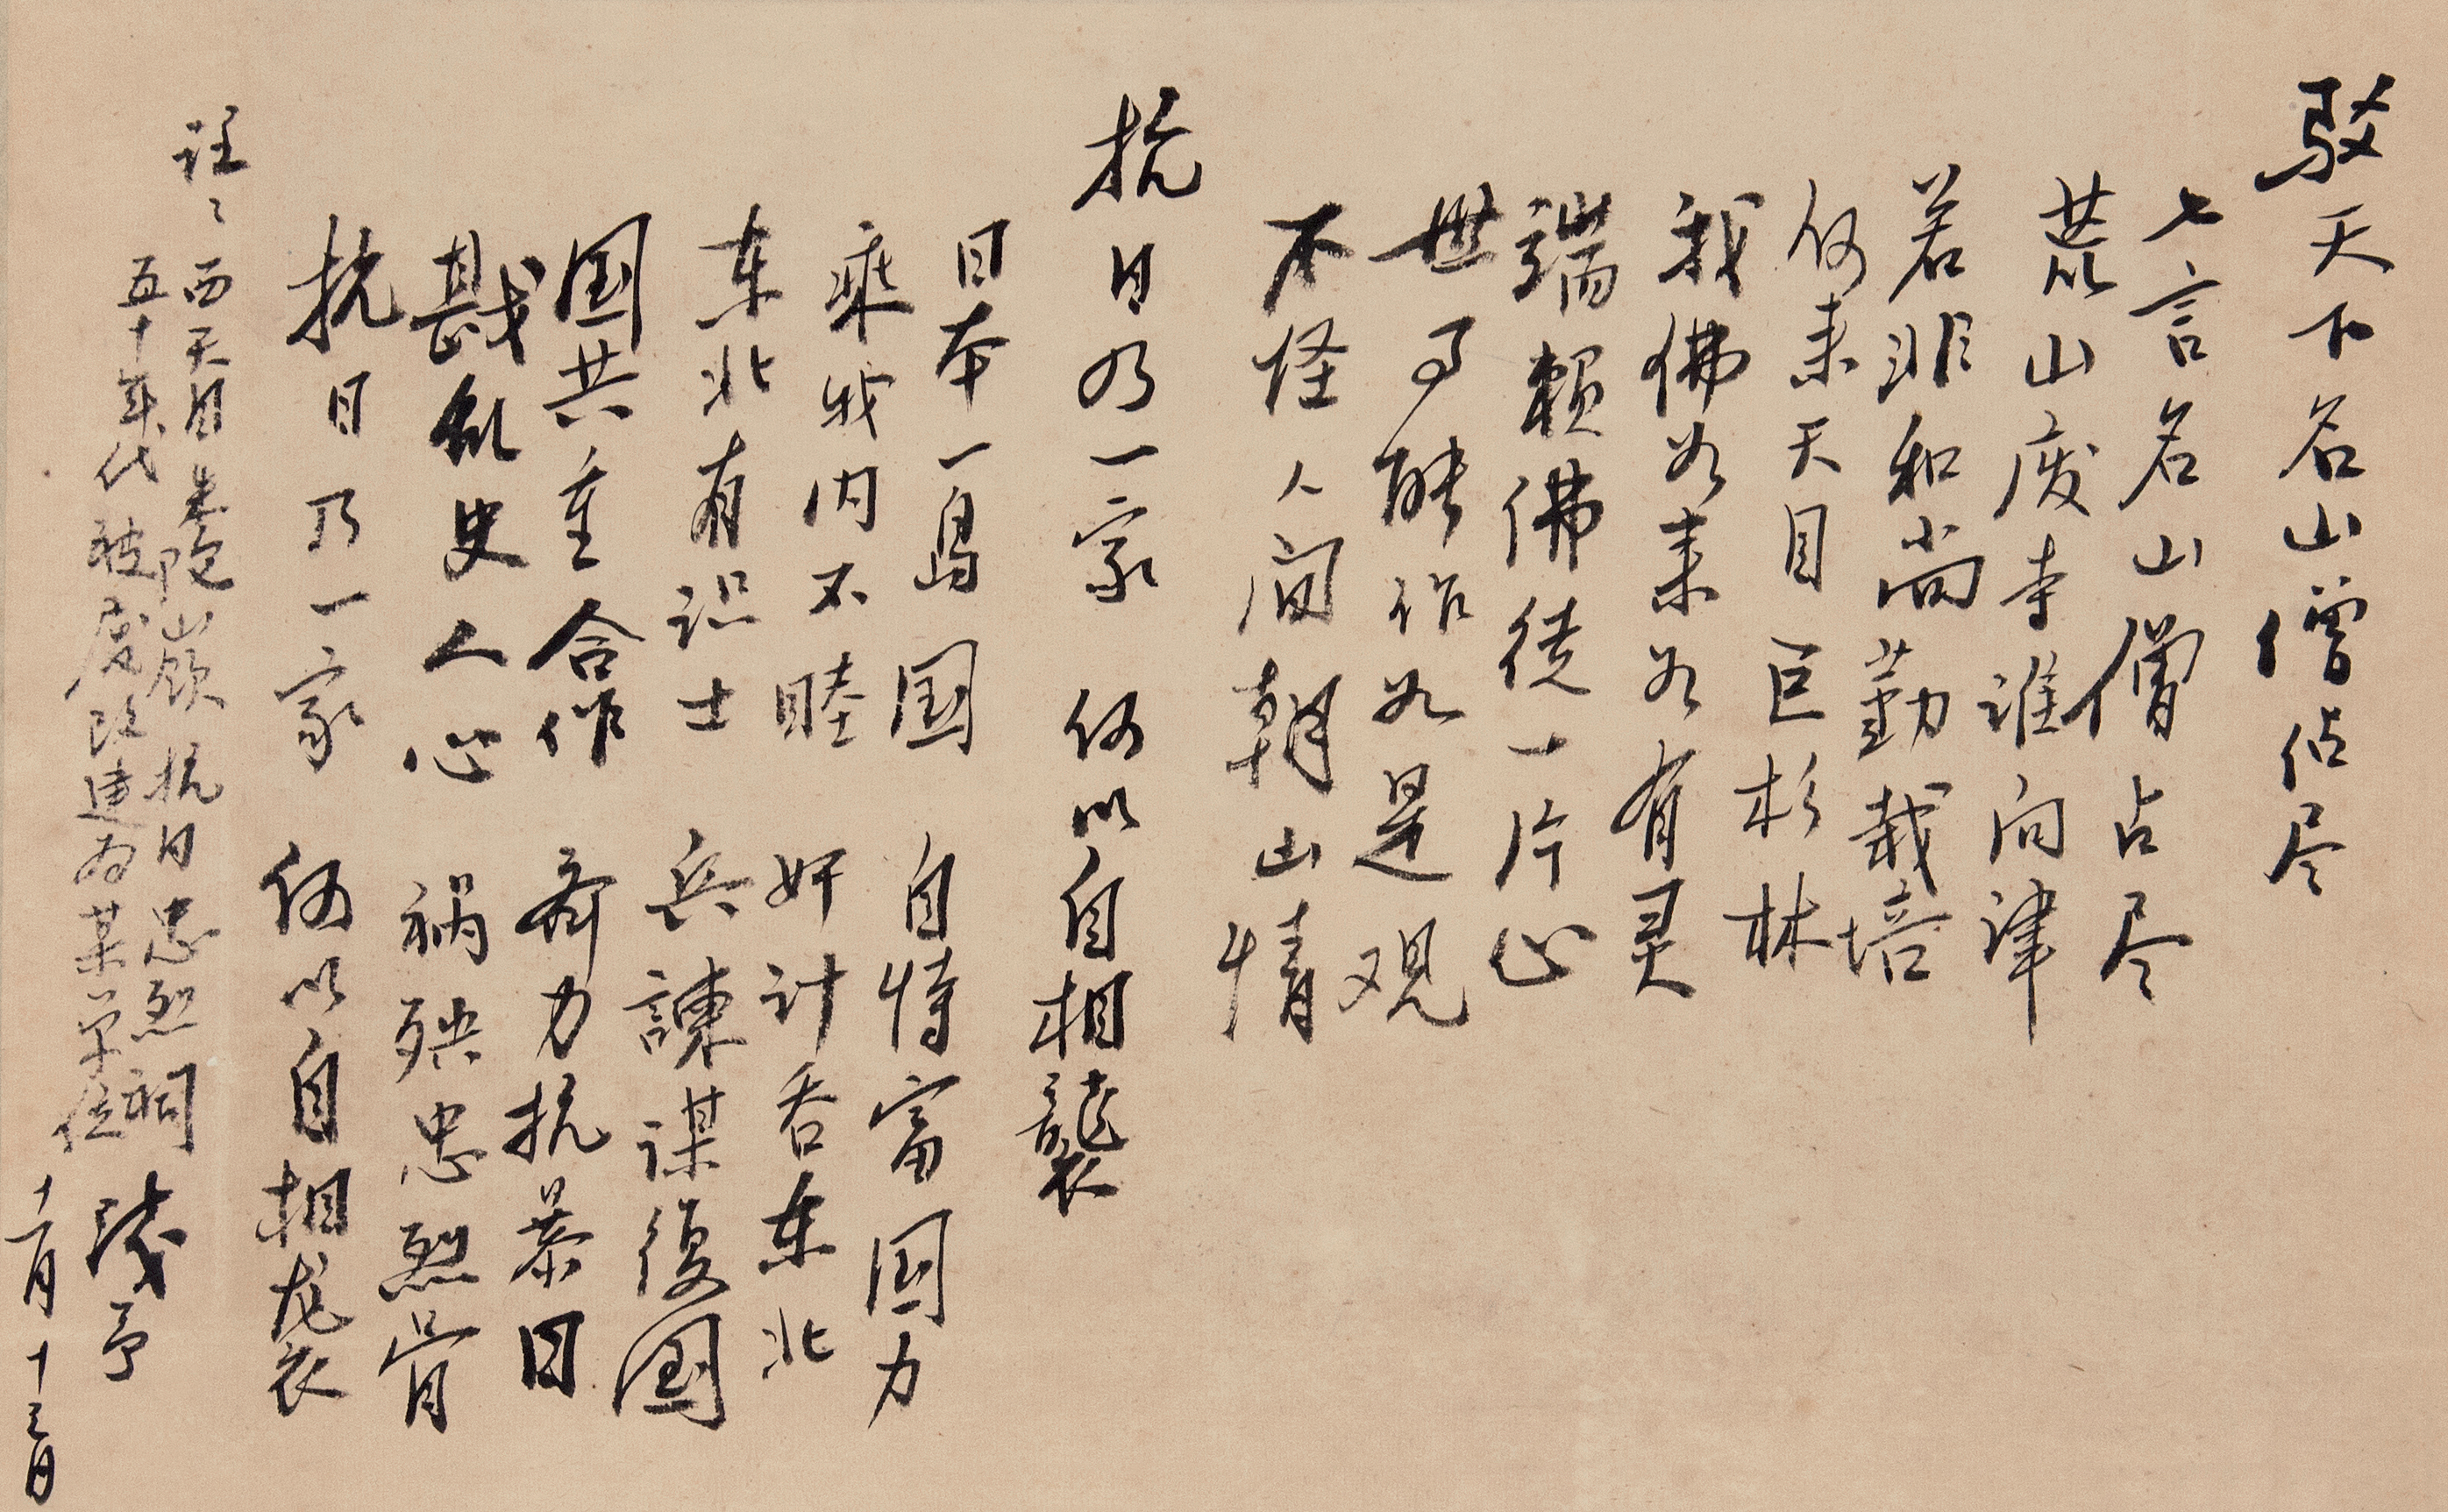 驳天下名山僧占尽
七言名山僧占尽
荒山废寺谁问津
若非和尚勤栽培
何来天目巨杉林
我佛如来如有灵
端赖佛徒一片心
世事能作如是观
不怪人间朝山情
抗日乃一家 何以自相袭
日本一岛国 自恃富国力
乘我内不睦 奸计吞东北
东北有识士 兵諫谋復国
国共重合作 齐力抗暴日
戡乱史人心 祸殃忠烈骨
抗日乃一家 何以自相袭
註：西天目朱陀岭 抗日忠烈祠
五十年代被废改建为某单位
十一月十三日